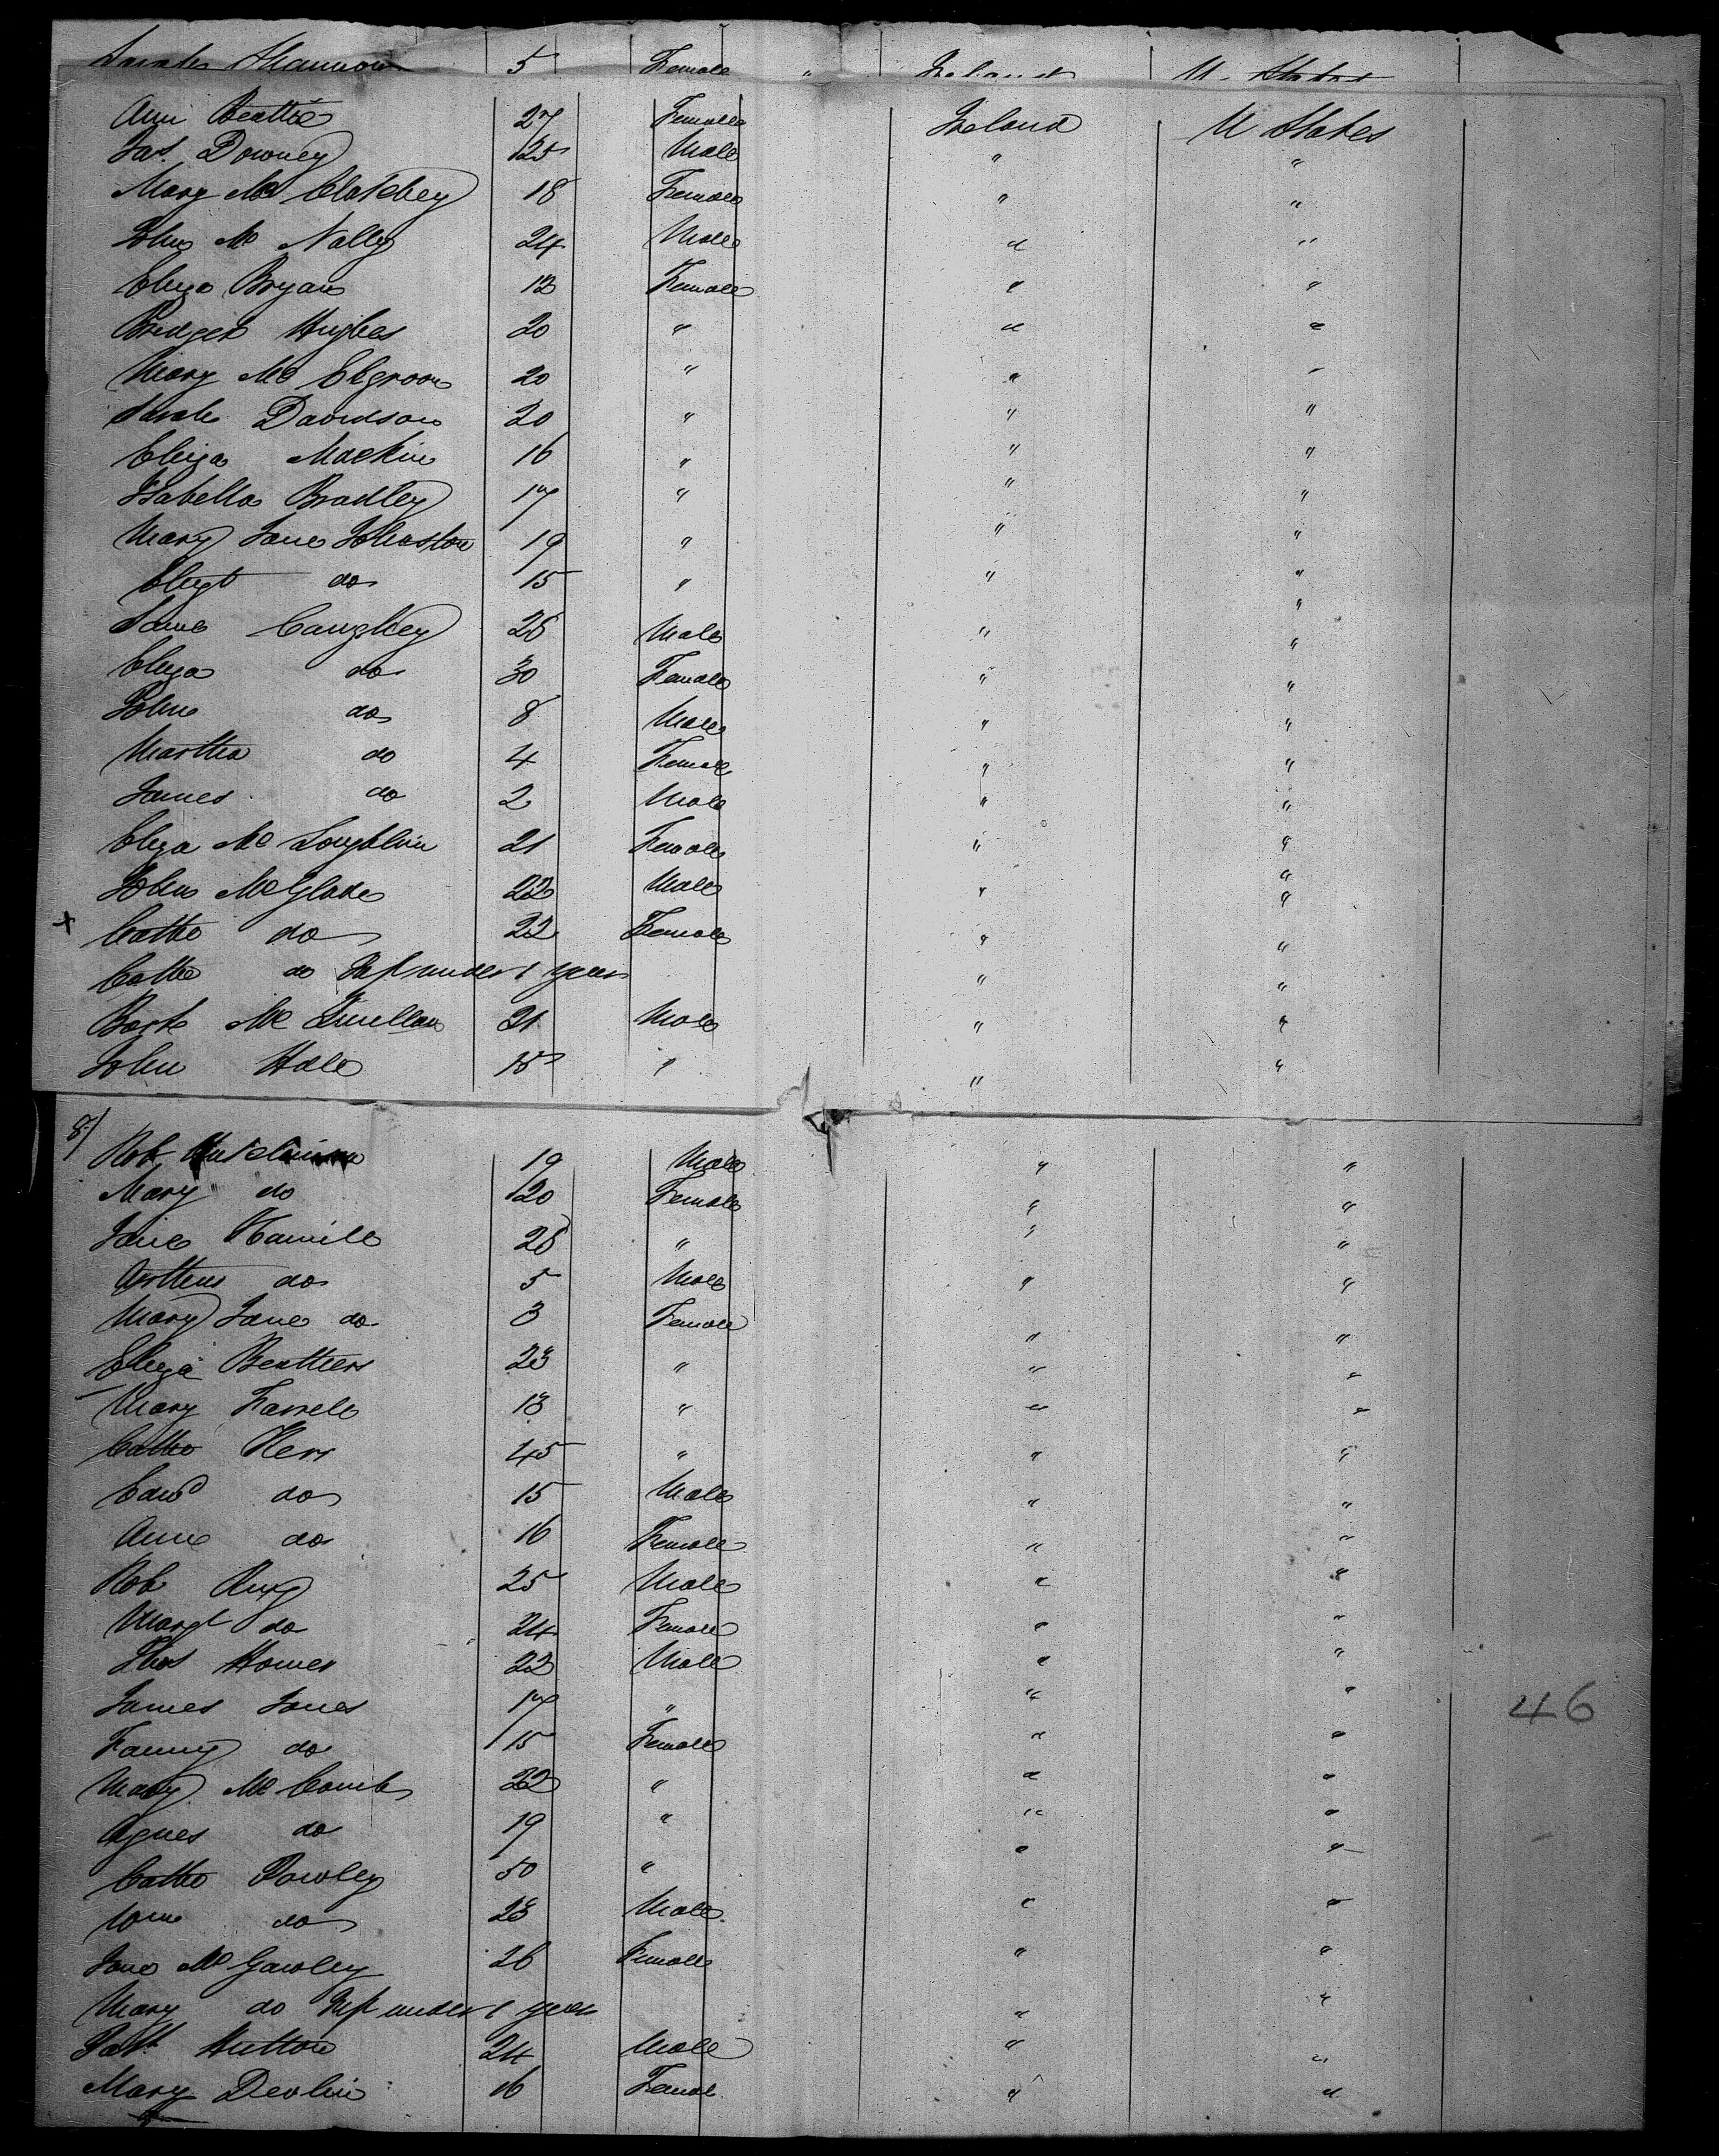 Sarah Shannon 5 Female " Ireland U. States
Ann Beattie 27 Female Ireland U States
Jas. Downey 25 Male " "
Mary Mc Clatchey 18 Female " "
John Mc Nally 24 Male " "
Eliza Bryan 12 Female " "
Bridget Hughes 20 " " "
Mary Mc 20 " " "
Sarah Davidson 20 " " "
Eliza Mackin 16 " " "
Isabella Bradley 17 " " "
Mary Jane Johnston 19 " " "
Elizt do 15 " " "
Caughey 28 Male " "
Eliza do 30 Female " "
John do 8 Male " "
Martha do 4 Female " "
James do 2 Male " "
Eliza Mc Loughlin 21 Female " "
John McGlade 22 Male " "
+ Cathe do 22 Female " "
Cathe do Inf under 1 year " "
Mc Quillan 21 Male " "
John Hale 18 " " "
8/
Rob 19 Male " "
Mary do 20 Female " "
Jane Hamill 28 " " "
do 5 Male " "
Mary Jane do 3 Female " "
Eliza 23 " " "
Mary Farrell 18 " " "
Cathe Kerr 45 " " "
Edwd do 15 Male " "
Anne do 16 Female " "
Rob 25 Male " "
Margt do 24 Female " "
Thos 22 Male " "
James Jones 17 " " "
Fanny do 15 Female " "
Mary Mc Comb 22 " " "
Agnes do 19 " " "
Cathe 50 " " "
Wm do 23 Male " "
Jane Mc Gawley 26 Female " "
Mary do Inf under 1 year " "
Patt Hutton 24 Male " "
Mary Devlin 16 Female " "
46